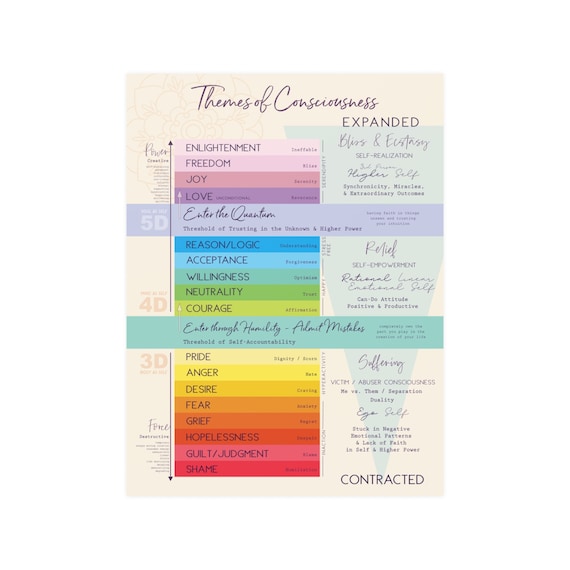 Themes of Consciousness
EXPANDED
Power
Creative
ENLIGHTENMENT Ineffable
FREEDOM Bliss
JOY Serenity
LOVE Reverence
SERENDIPITY
Bliss & Ecstasy
SELF-REALIZATION
Higher Self
Synchronicity, Miracles,
& Extraordinary Outcomes
5D
Enter the Quantum
Threshold of Trusting in the Unknown & Higher Power
having faith in things
unseen and trusting
your intuition
REASON/LOGIC Understanding
ACCEPTANCE Forgiveness
WILLINGNESS Optimism
NEUTRALITY Trust
COURAGE Affirmation
STRESS
FREE
HAPPY
Relief
SELF-EMPOWERMENT
Rational Linear
Emotional Self
Can-Do Attitude
Positive & Productive
4D
Enter through Humility - Admit Mistakes
Threshold of Self-Accountability
completely see the
part you play in the
creation of your life
3D
PRIDE Dignity / Scorn
ANGER Hate
DESIRE Craving
FEAR Anxiety
GRIEF Regret
HOPELESSNESS Despair
GUILT/JUDGMENT Blame
SHAME Humiliation
HYPERACTIVITY
INACTION
Suffering
VICTIM / ABUSER CONSCIOUSNESS
Me vs. Them / Separation
Duality
Ego Self
Stuck in Negative
Emotional Patterns
& Lack of Faith
in Self & Higher Power
Force
Destructive
CONTRACTED